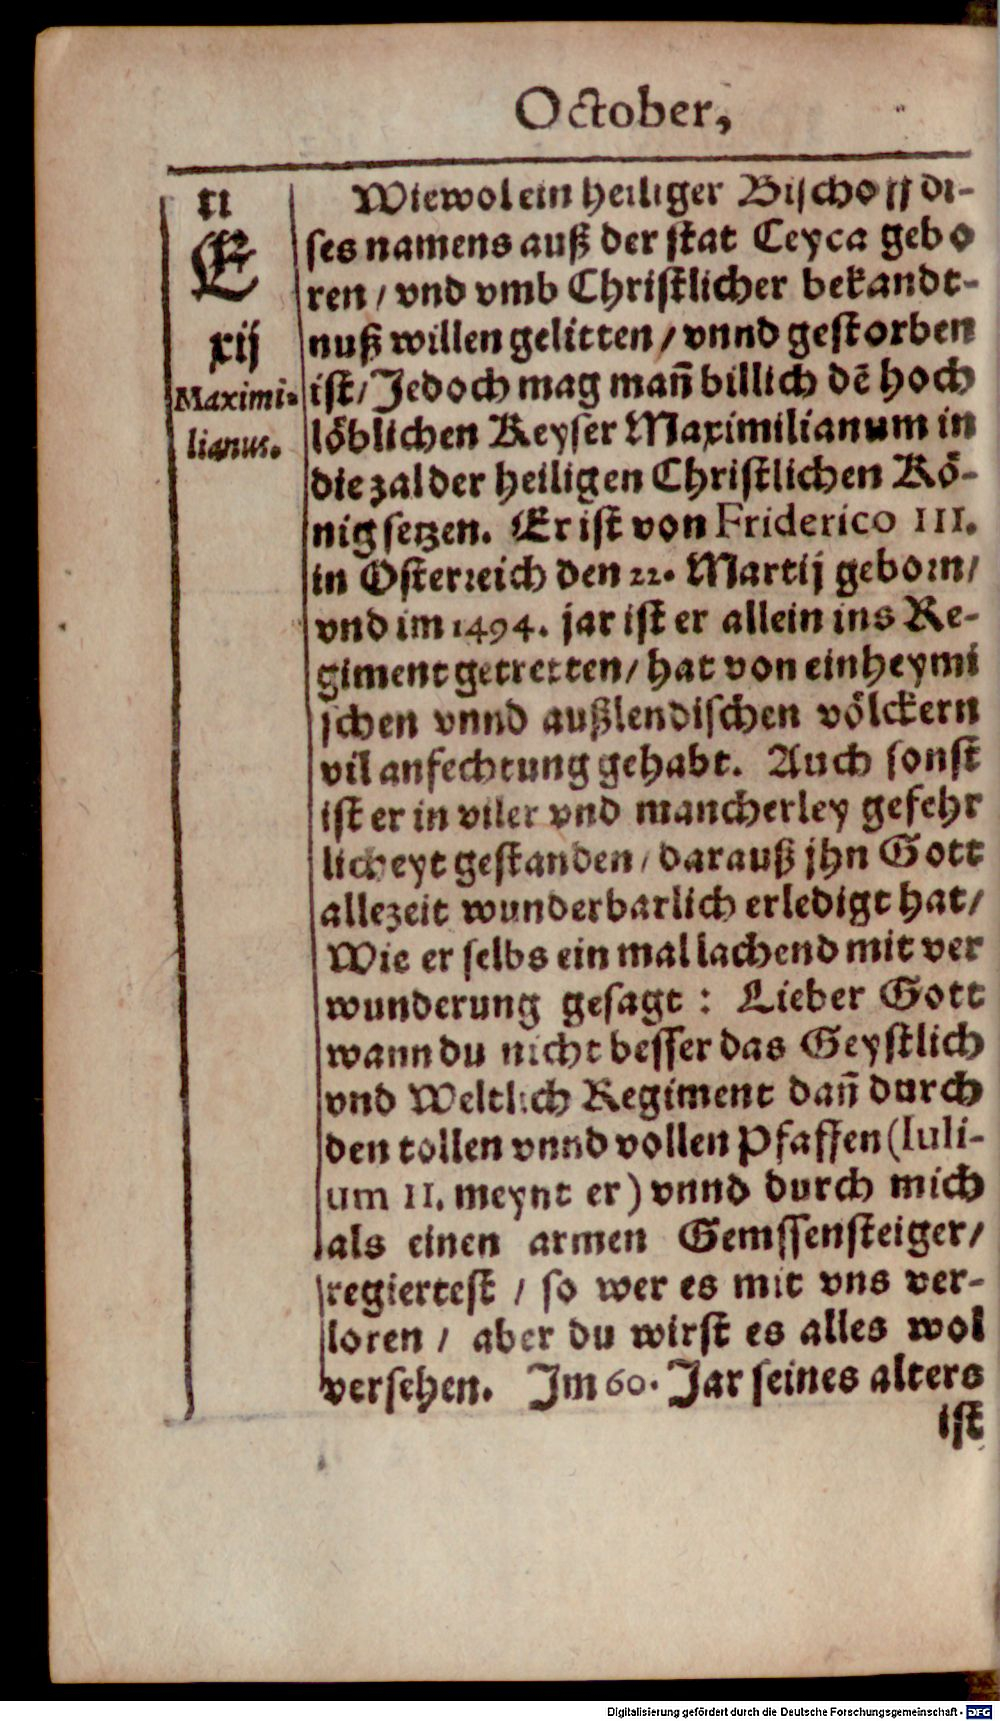 October,
11
E
xij
Maximi-
lianus.
Wiewol ein heiliger Bischoff di-
ses namens auß der stat Ceyca gebo
ren / vnd vmb Christlicher bekandt-
nuß willen gelitten / vnnd gestorben
ist / Jedoch mag mañ billich dē hoch
löblichen Keyser Maximilianum in
die zal der heiligen Christlichen Kö-
nig setzen. Er ist von Friderico III.
in Osterreich den 22. Martij geborn /
vnd im 1494. jar ist er allein ins Re-
giment getretten / hat von einheymi
schen vnnd außlendischen völckern
vil anfechtung gehabt. Auch sonst
ist er in viler vnd mancherley gefehr
licheyt gestanden / darauß jhn Gott
allezeit wunderbarlich erledigt hat /
Wie er selbs ein mal lachend mit ver
wunderung gesagt : Lieber Gott
wann du nicht besser das Geystlich
vnd Weltlich Regiment dañ durch
den tollen vnnd vollen Pfaffen (Iuli-
um II. meynt er) vnnd durch mich
als einen armen Gemssensteiger /
regiertest / so wer es mit vns ver-
loren / aber du wirst es alles wol
versehen. Im 60. Jar seines alters
ist
Digitalisierung gefördert durch die Deutsche Forschungsgemeinschaft - DFG